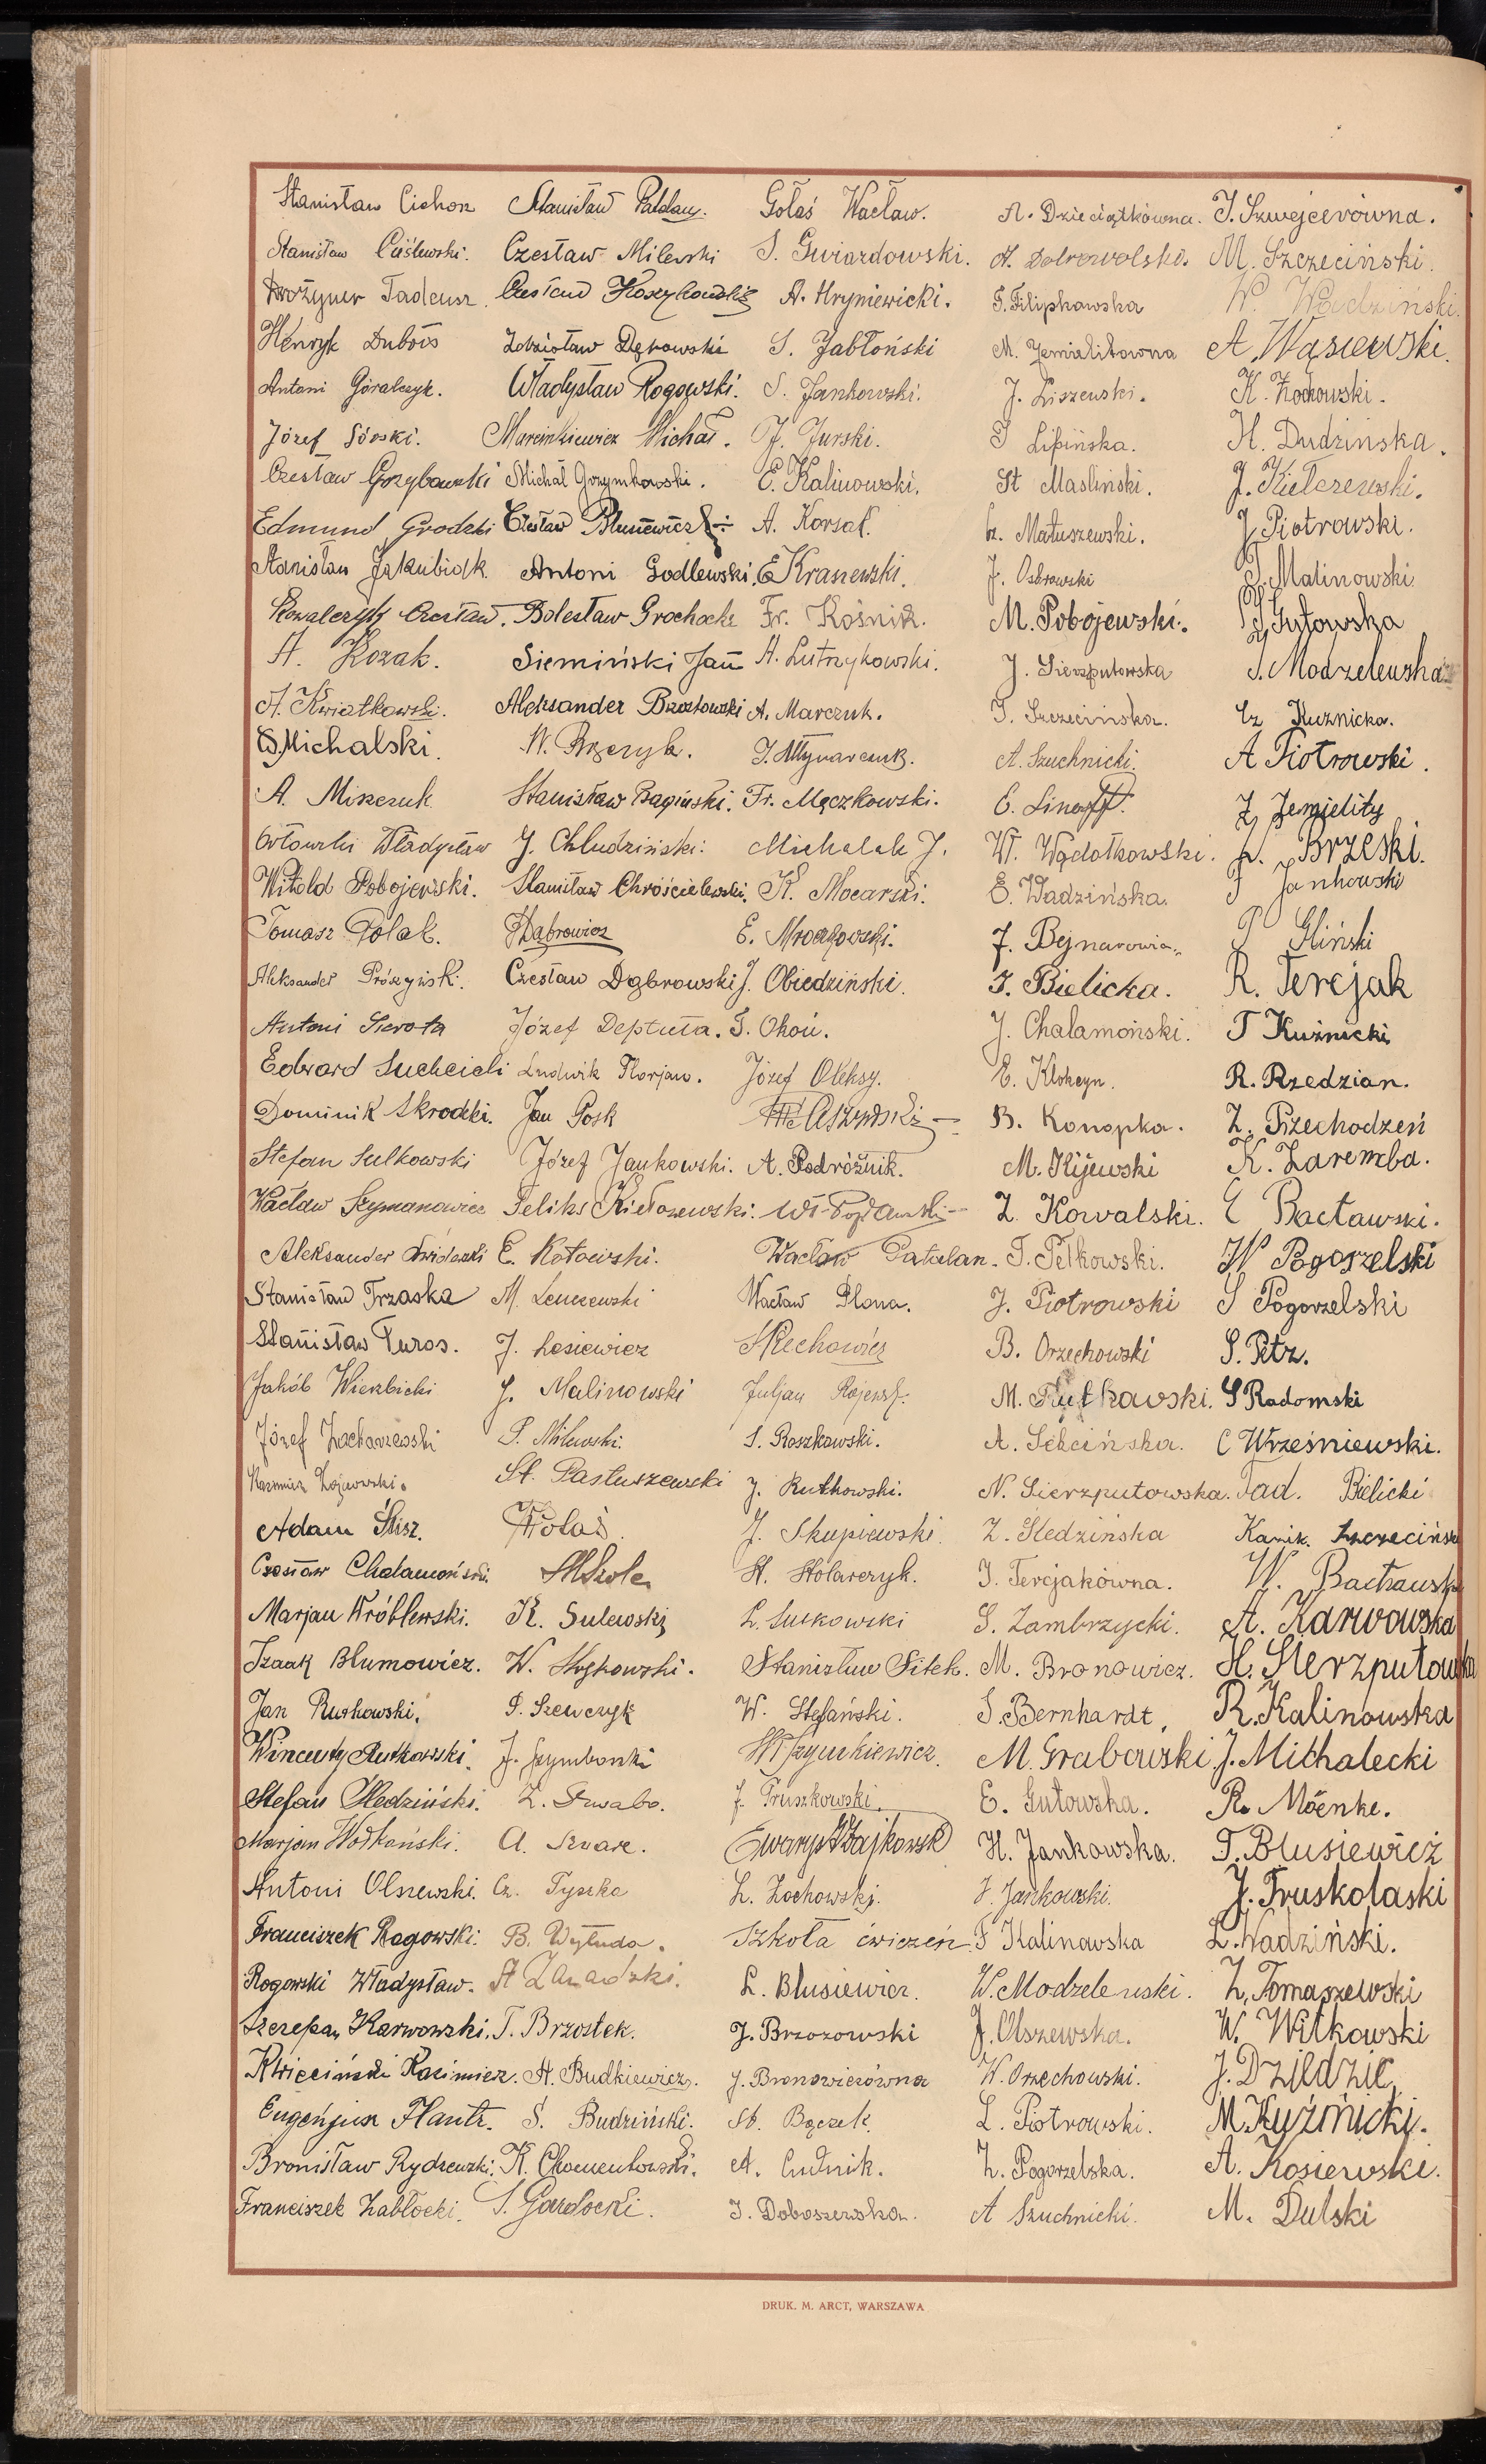 Stanisław Cichon
Stanisław Ciślewski.
Drożyner Tadeusz
Henryk Dubois
Antoni Góralczyk.
Józef Górski.
Czesław Grzybowski
Edmund Grodzki
Stanisław Jakubiak.
Kowalczyk Czesław.
A. Kozak.
A. Kwiatkowski.
S. Michalski.
A. Miszczuk
Orłowski Władysław
Witold Pobojewski.
Tomasz Polak.
Aleksander Prószyński.
Antoni Sierota
Edward Suchcicki
Dominik Skrodzki.
Stefan Sulkowski
Wacław Szymanowicz
Aleksander Świderski
Stanisław Trzaska
Stanisław Turos.
Jakób Wierzbicki
Józef Zacharzewski
Kazimierz
Adam Ślisz.
Czesław Chałamoński.
Marjan Wróblewski.
Izaak Blumowicz.
Jan Rutkowski.
Wincenty Rutkowski.
Stefan Śledziński.
Marjan Wołkoński.
Antoni Olszewski.
Franciszek Rogowski.
Rogowski Władysław.
Szczepan Karwowski.
Kwieciński Kazimierz.
Eugenjusz Plautz.
Bronisław Rydzewski.
Franciszek Zabłocki.
Stanisław
Czesław Milewski
Czesław Koszykowski
Zdzisław Dębowski
Władysław Rogowski.
Marcinkiewicz Michał.
Michał Grzymkowski.
Czesław Blusiewicz
Antoni Godlewski.
Bolesław Grochocki
Siemiński Jan
Aleksander Brzostowski
W. Brzezyk.
Stanisław Bagiński.
J. Chludziński.
Stanisław Chróścielewski.
Dąbrowicz
Czesław Dąbrowski
Józef Deptuła.
Ludwik Florjan.
Jan Gosk
Józef Jankowski.
Feliks Kiełczewski.
E. Kotowski.
M. Lenczewski
J. Lesiewicz
J. Malinowski
P. Milewski.
St. Pastuszewski
Wolas
Szkole
K. Sulewski
W. Stryjkowski.
P. Szewczyk
J. Szymborski
Z. Szwabo.
A. Szwarc.
Cz. Tyszka
B. Wyłuda.
St Zawadzki.
T. Brzostek.
A. Budkiewicz.
S. Budziński.
K. Chomentowski.
S. Gardocki.
Gołaś Wacław.
S. Gwiazdowski.
A. Hryniewicki.
S. Jabłoński
S. Jankowski.
J. Jurski.
E. Kalinowski.
A. Korsak.
E Kraszewski.
Fr. Kośnik.
A. Lutrzykowski.
A. Marczuk.
J. Młynarczuk.
Fr. Mączkowski.
Michalak J.
K. Mocarski.
E. Mroczkowski.
J. Obiedziński.
S. Okoń.
Józef Oleksy.
A. Podróżnik.
Wacław Patalan.
Wacław Plona.
S Rechowicz
Juljan
S. Roszkowski.
J. Rutkowski.
J. Skupiewski.
St. Stolarczyk.
L. Sutkowski
Stanisław Sitek.
W. Stefański.
Szymkiewicz.
J. Truszkowski.
Ewaryst Zajkowski
L. Żochowski.
Szkoła ćwiczeń
L. Blusiewicz.
J. Brzozowski
J. Bronowiczówna
St. Bączek
A. Cudnik.
J. Doboszewska.
A. Dzieciątkówna.
A. Dobrowolska.
S. Filipkowska
M. Jemialitowna
J. Liszewski.
J Lipińska.
St Masliński.
Cz. Matuszewski.
J. Ostrowski
M. Pobojewski.
J. Sierzputowska
J. Szczecińska.
A. Szuchnicki.
E. Linoff.
Wł. Wądołkowski.
E. Wadzińska.
J. Bejnarowicz.
J. Bielicka.
J. Chalamoński.
E. Klokcyn.
B. Konopka.
M. Kijewski
Z. Kowalski.
J. Pełkowski.
J. Piotrowski
B. Orzechowski
M. Rutkowski.
A. Sekcińska.
N. Sierzputowska.
Z. Śledzińska
J. Tercjakówna.
S. Zambrzycki.
M. Bronowicz.
S. Bernhardt.
M. Grabowski
E. Gutowska.
H. Jankowska.
J. Jankowski.
F Kalinowska
W. Modzelewski.
J. Olszewska.
W. Orzechowski.
L. Piotrowski.
Z. Pogorzelska.
A Szuchnicki.
J. Szwejcerówna.
M. Szczeciński.
W. Wądziński.
A. Wąsiewski.
K. Żochowski.
H. Dudzinska.
J. Kiełczewski.
J. Piotrowski.
J. Malinowski
J Gutowska
J. Modzelewska
Cz Kuznicka.
A Piotrowski.
Z Jemielity
W. Brzeski.
J Jankowski
P Gliński
R. Tercjak
T Kuźnicki
R. Rzedzian.
Z. Przechodzeń
K. Zaremba.
E Bacławski.
W Pogorzelski
S Pogorzelski
S. Petz.
S Radomski
C Wrześniewski.
Tad. Bielicki
Kazik. Szczeciński
W. Bacławski
A. Karwowska
H. Sierzputowska
R. Kalinowska
J. Michalecki
R. Möenke.
T. Blusiewicz
J. Truskolaski
L. Wadziński.
Z. Tomaszewski
W. Witkowski
J. Dziedzic
M Kuźnicki.
A. Kosiewski.
M. Dulski
DRUK. M. ARCT, WARSZAWA